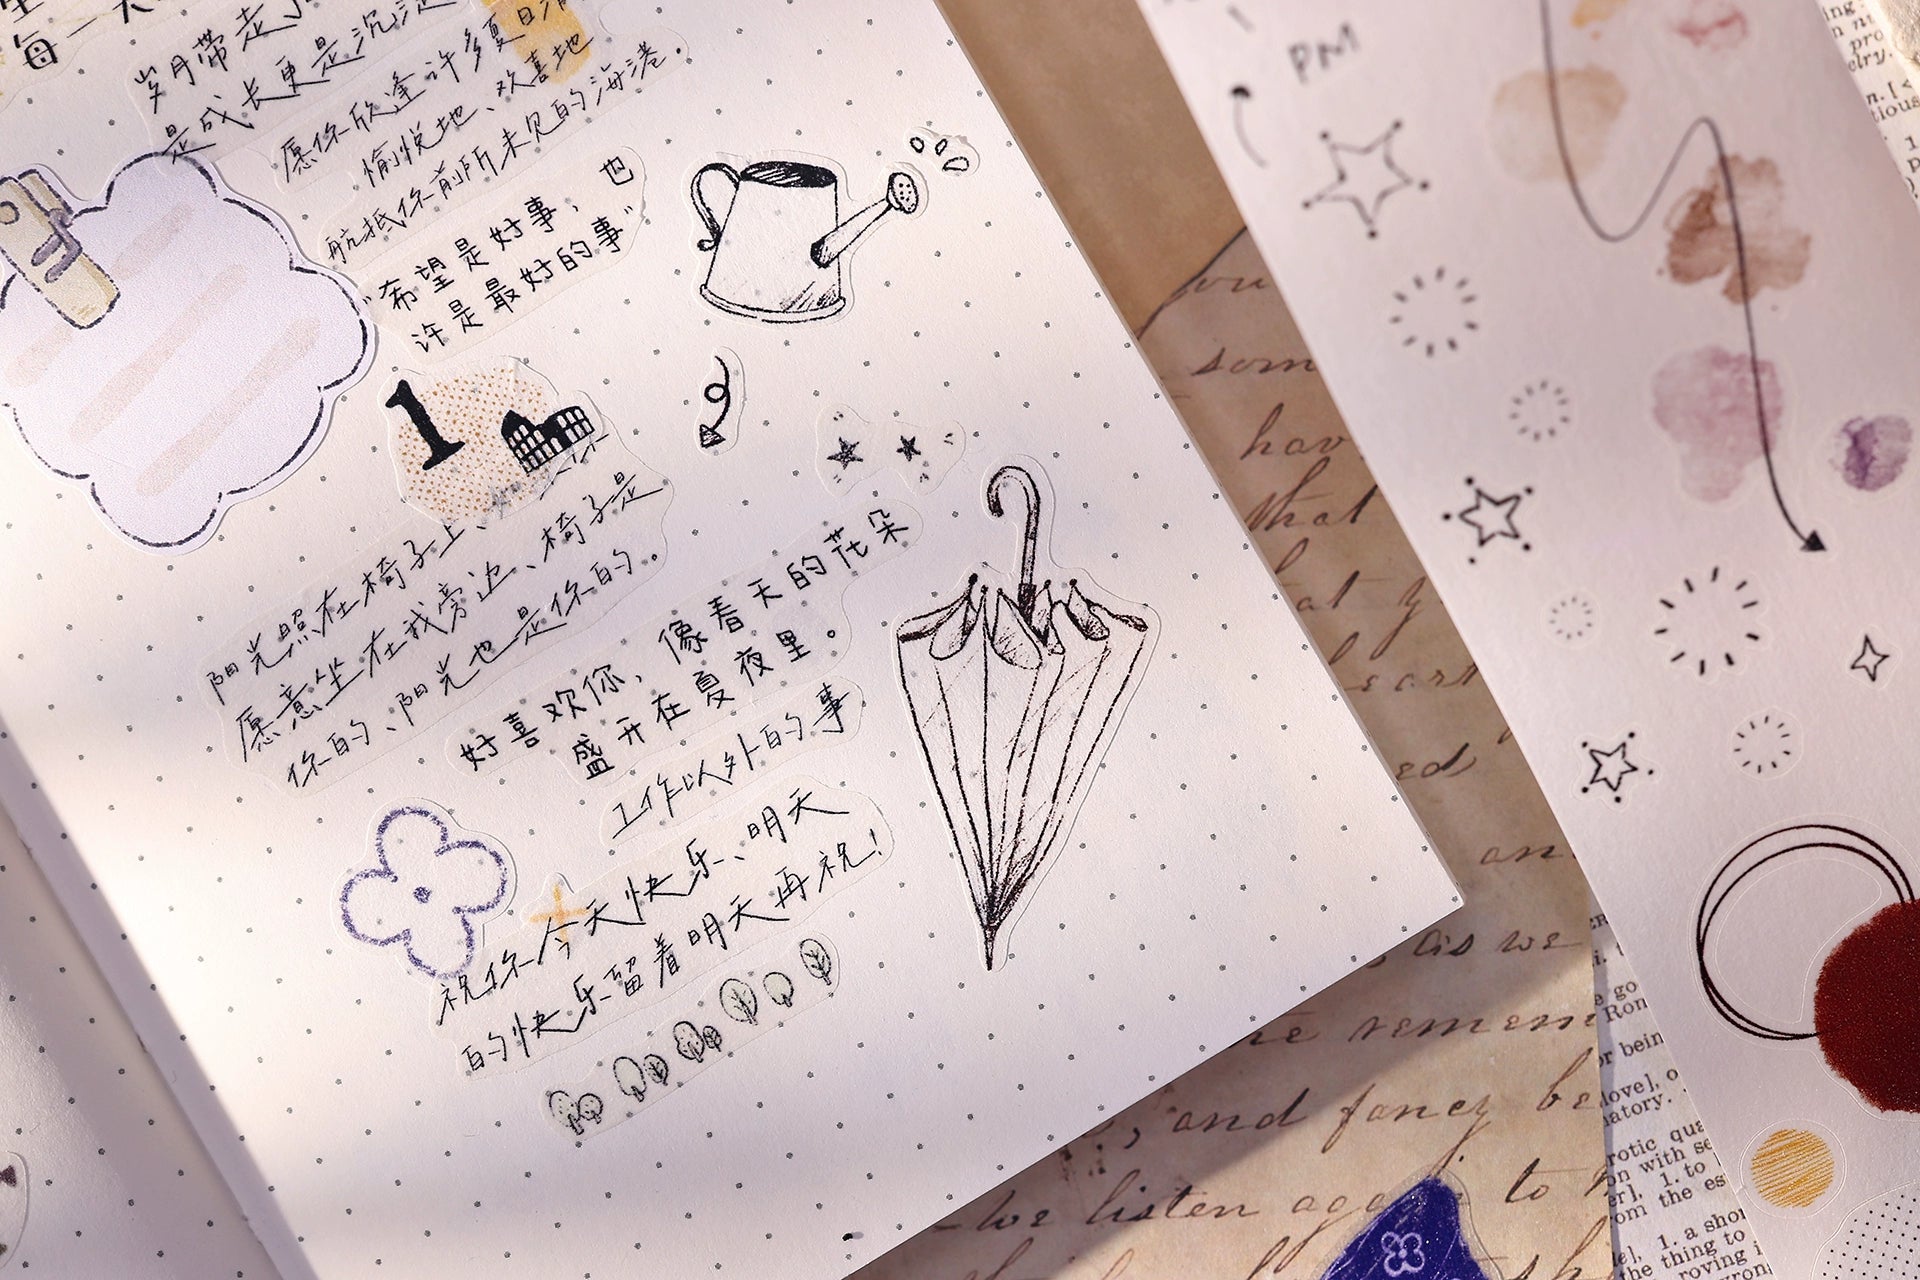 每一天
岁月带走了
是成长更是沉淀
愿你欣逢许多夏日清
愉悦地、欢喜地
航抵你前所未见的海港.
"希望是好事，也
许是最好的事"
1
阳光照在椅子上、
愿意坐在我旁边、椅子是
你的、阳光也是你的.
好喜欢你，像春天的花朵
盛开在夏夜里。
工作以外的事
祝你今天快乐、明天
的快乐留着明天再祝!
PM
you
som
hav
that
at y
heart
ed
an
as we
the remem
, and fancy be
-we listen again to h
ing
pro
elry.
n. [<
tious
1.
go
Ron
or bein
love], o
matory.
rotic qua
on with se
er]. 1. to
rom the es
le]. 1. a shor
the thing to
roving i
wron